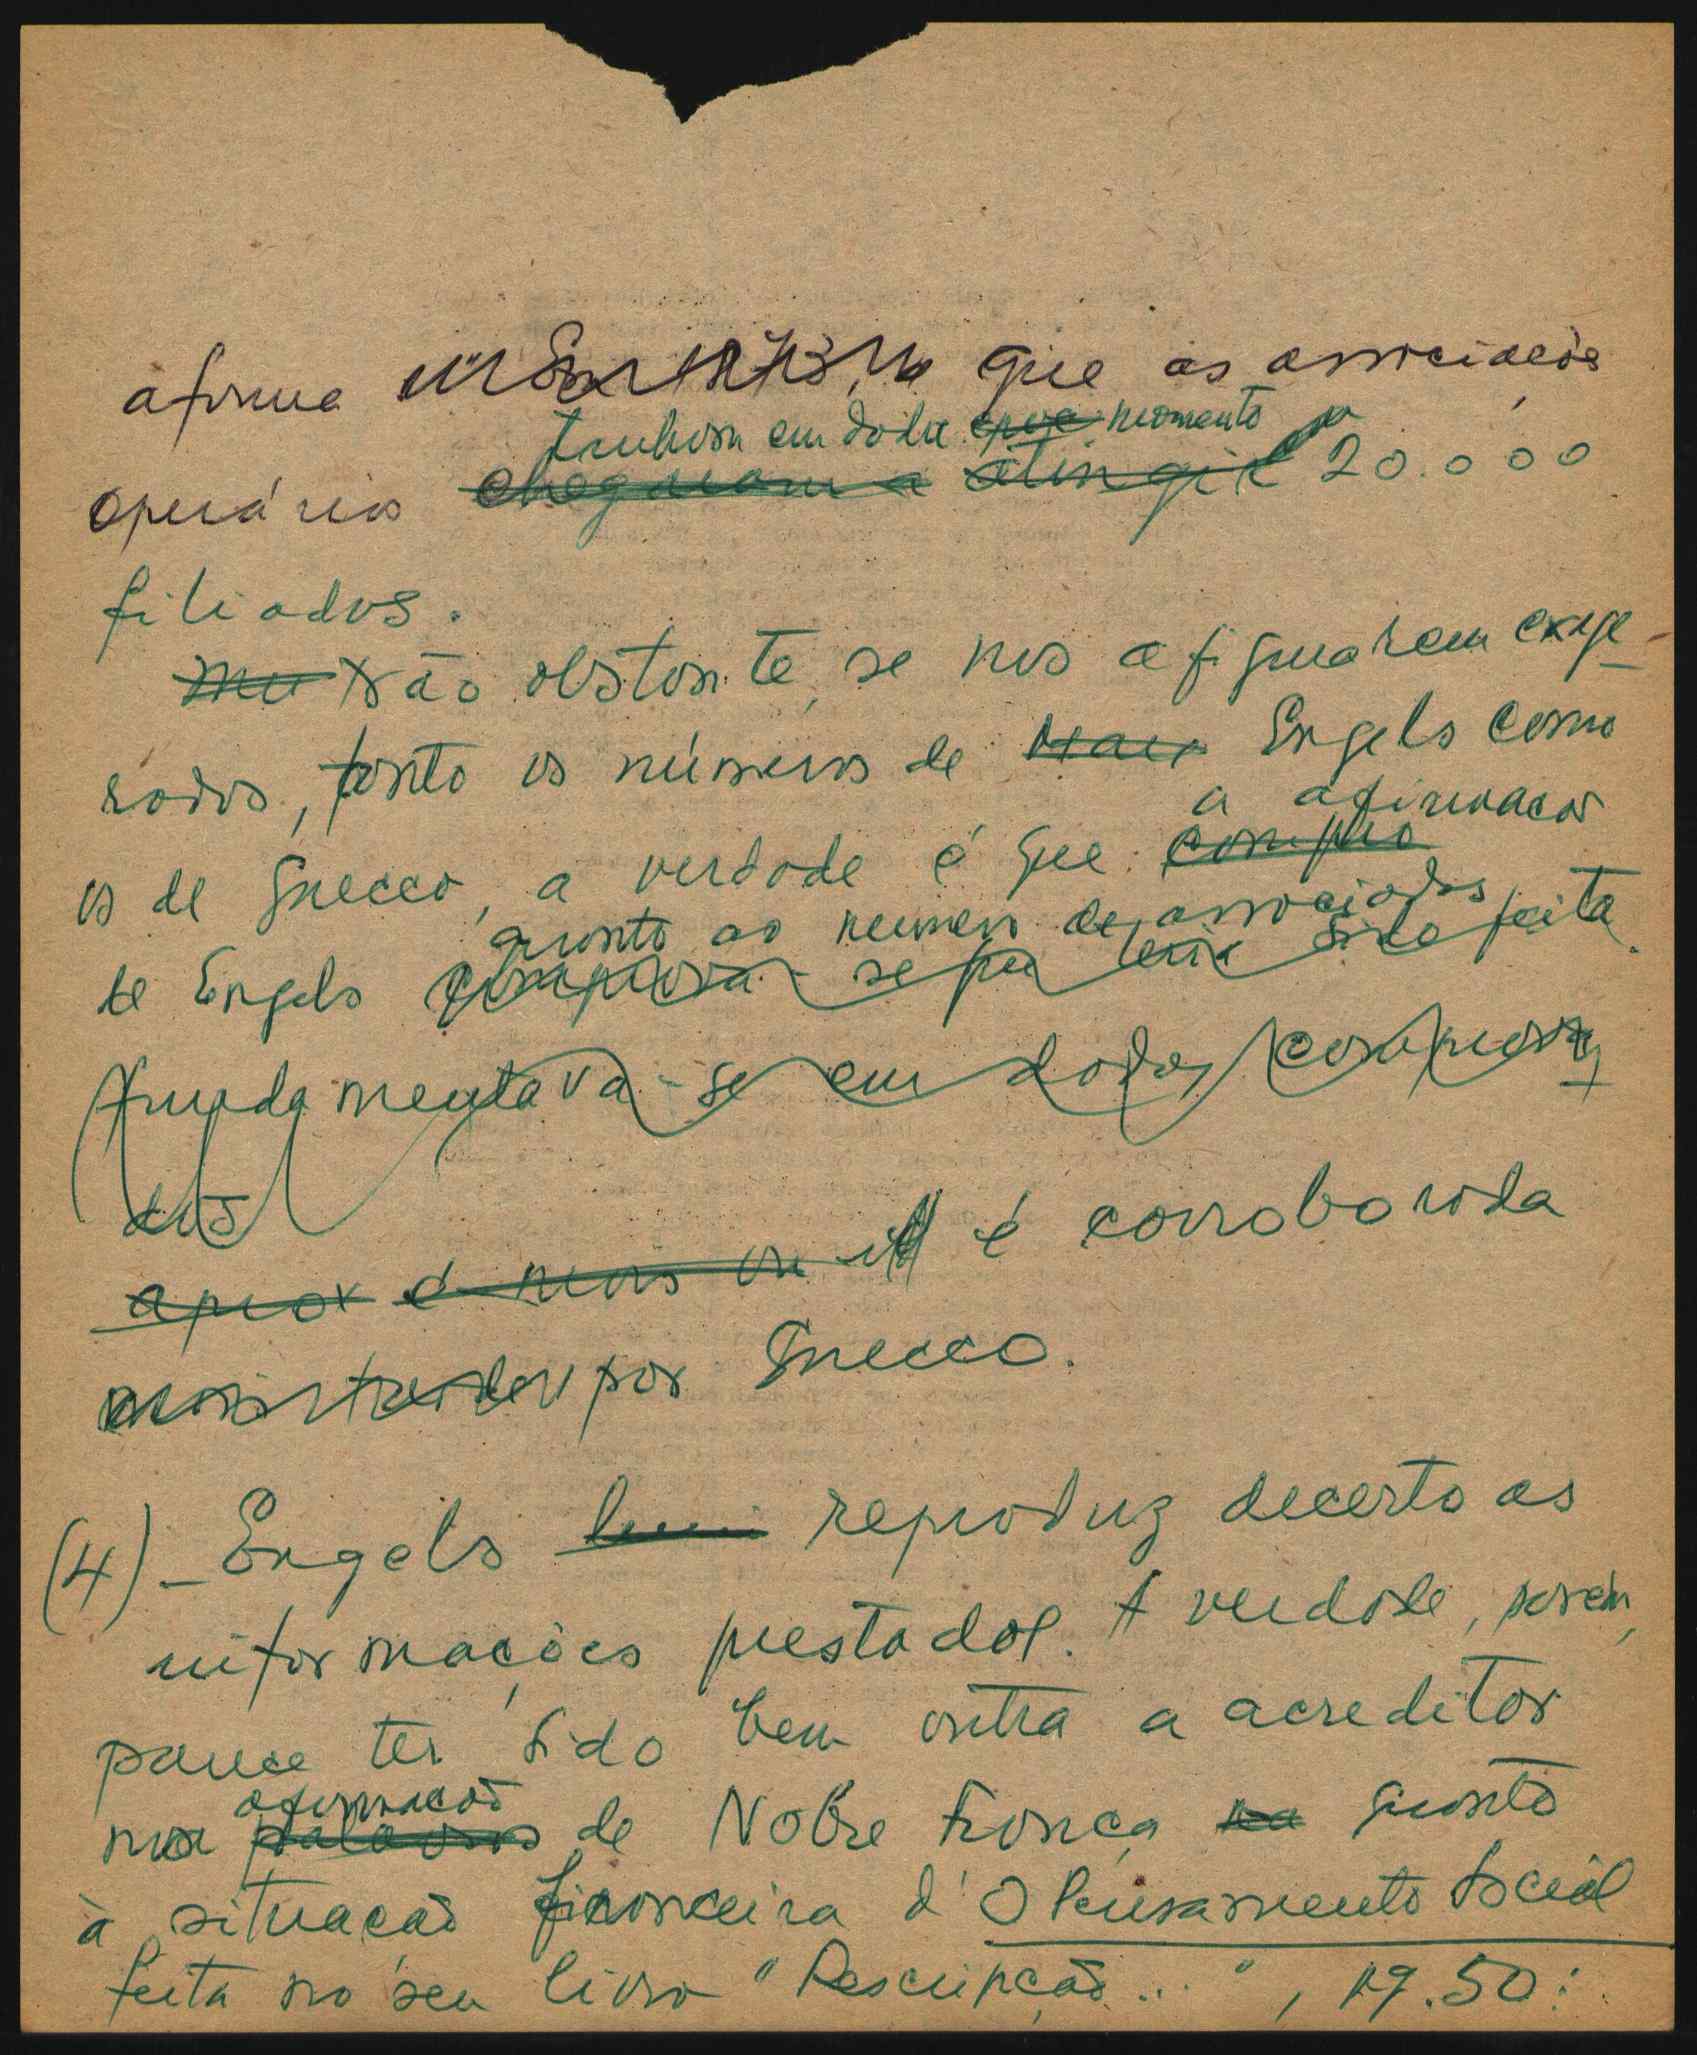 afirma que as associações
tinham em dada epoca momento
operários chegaram a atingir 20.000
filiados.
Não obstante, se nos afigurarem exage-
rados, tanto os números de Marx Engels como
a afirmação
os de Gnecco, a verdade é que compro
quanto ao número de associados
de Engels se feita
fundamentava-se em dados comprova
dos
aprox é mais ou é corroborada
por Gnecco.
(4) - Engels reproduz decerto as
informações prestadas. A verdade, porém,
parece ter sido bem outra a acreditar
afirmação
na palavras de Nobre França na quanto
à situação financeira d'O Pensamento Social
feita no seu livro "Descripção...", pg. 50: